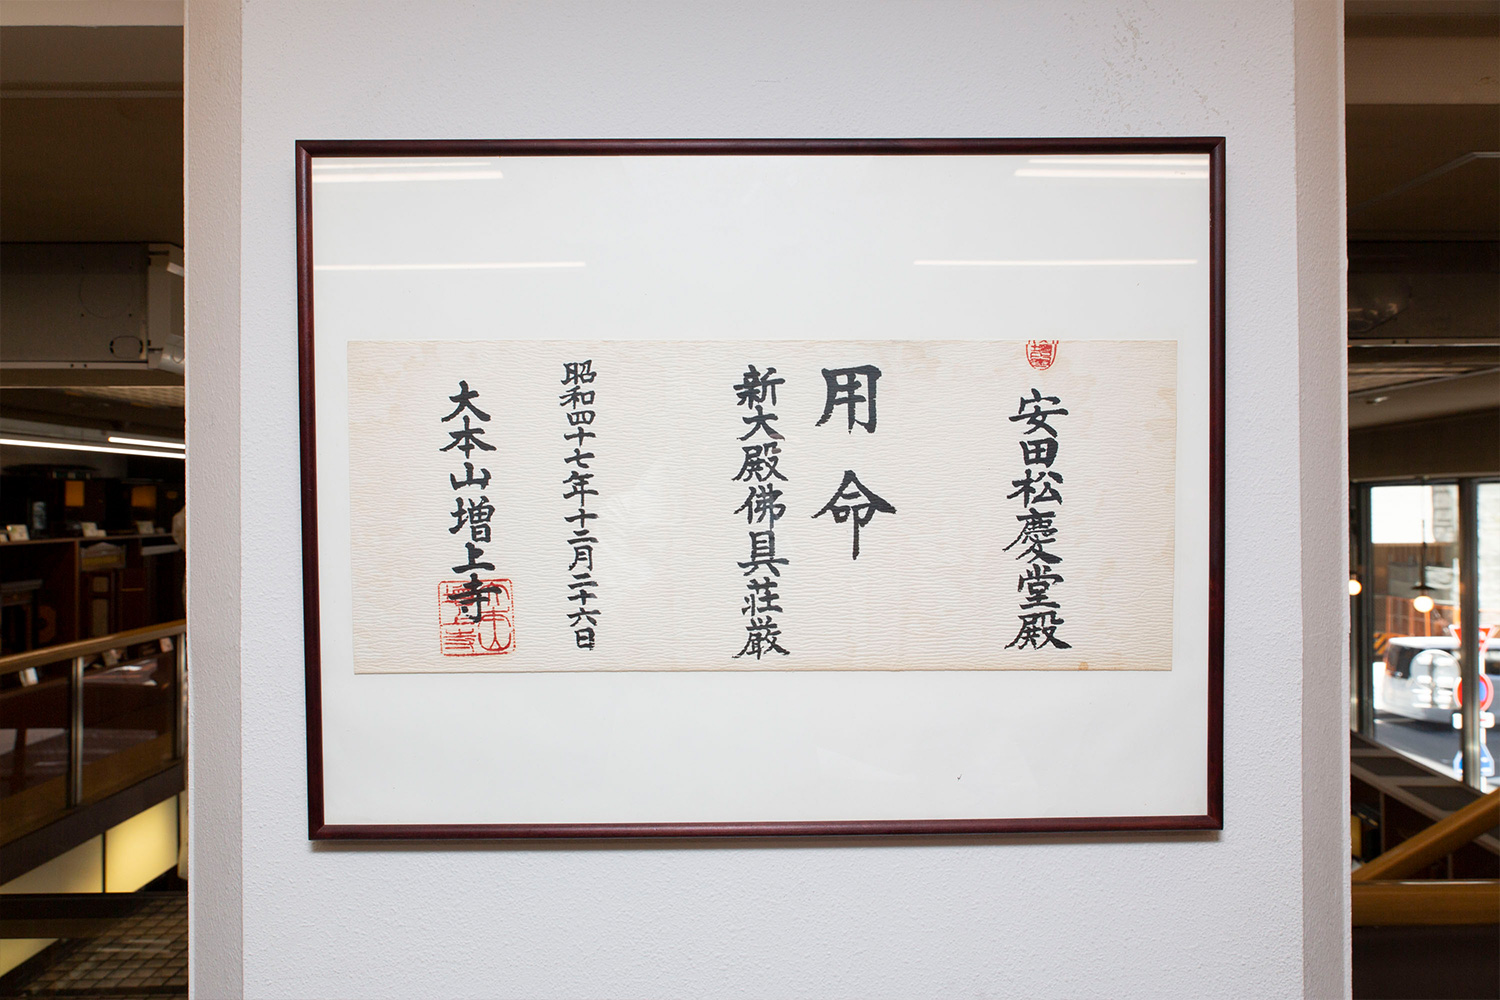 安田松慶堂殿
用命
新大殿佛具荘厳
昭和四十七年十二月二十六日
大本山増上寺
大本山
増上寺